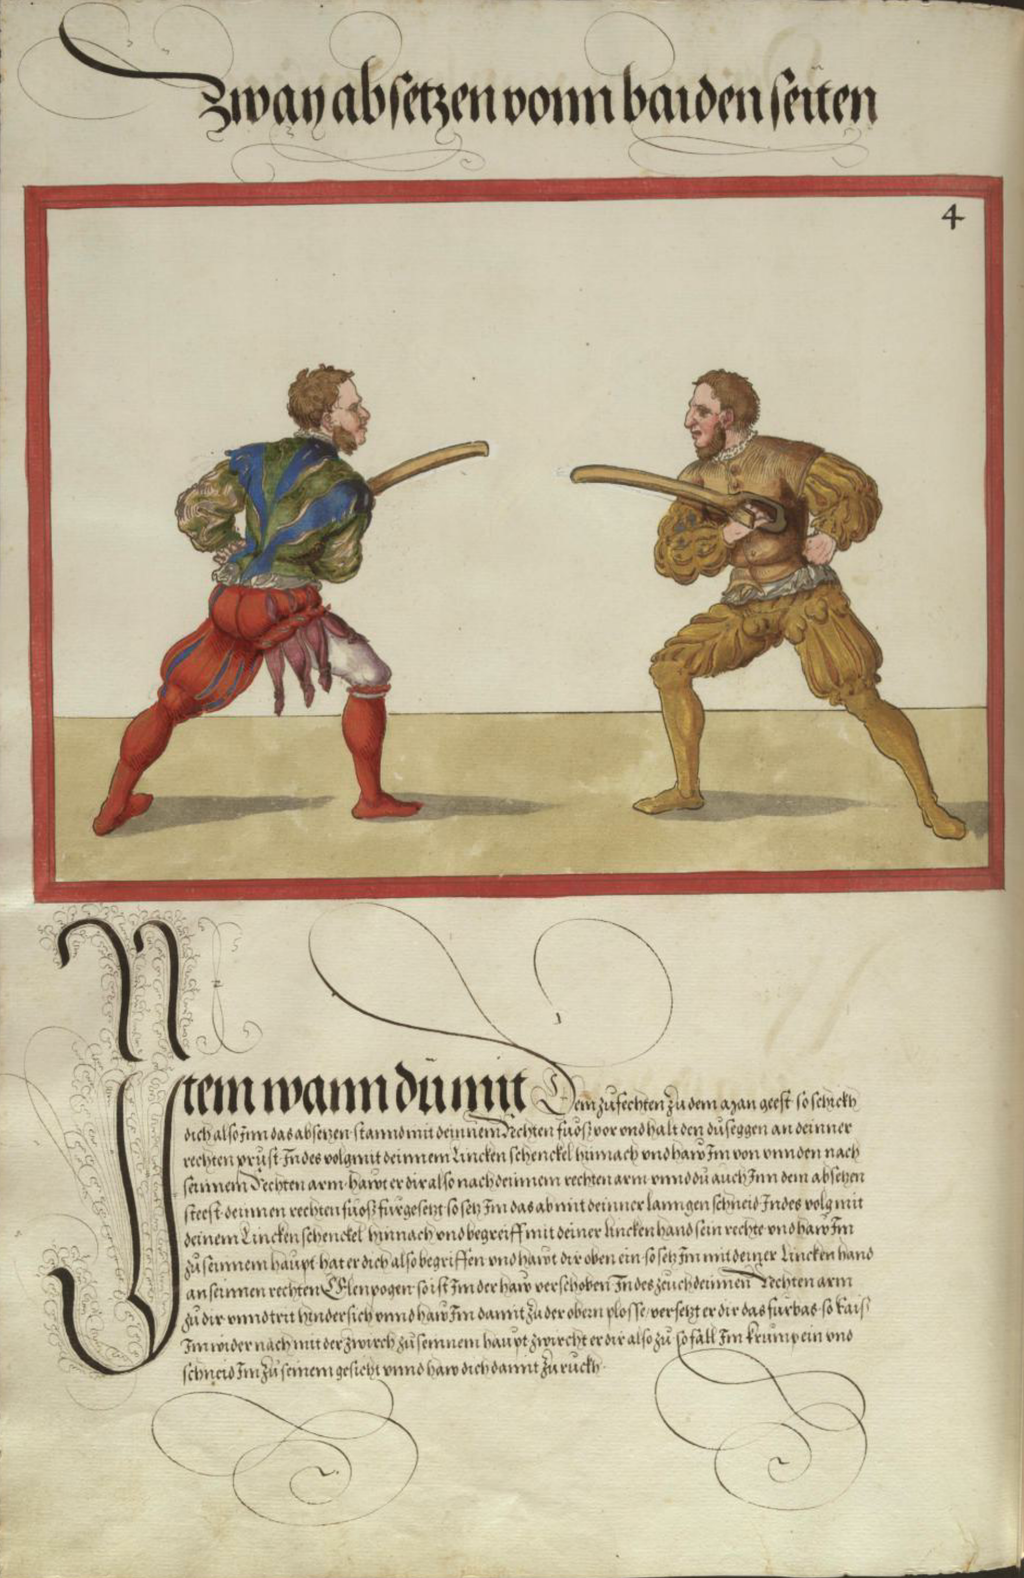 Zway absetzen vonn baiden seiten
4
Item wann dü mit Dem zufechten zu dem Man geest so schickh
dich also Inn das absetzen stannd mit deinnem Rechten fuoss vor vnd halt den duseggen an deinner
rechten prust Indes volg mit deinnem Lincken schenckel hinnach vnd haw Im von vnnden nach
seinnem Rechten arm hawt er dir also nach deinnem rechten arm vnnd du auch Inn dem absetzen
steest deinnen rechten fuoss fürgesetzt so setz Im das ab mit deinner lanngen schneid Indes volg mit
deinem Lincken schenckel hinnach vnd begreiff mit deiner lincken hand sein rechte vnd haw Im
zu seinnem haupt hat er dich also begriffen vnd hawt dir oben ein so setz Im mit deiner Lincken hand
an seinnen rechten Elenpogen so ist Im der haw verschoben Indes zeuch deinnen Rechten arm
zu dir vnnd trit hindersich vnnd haw Im damit zu der obern plosse versetzt er dir das fürbas so rais
Im wider nach mit der zwirch zu seinnem haupt zwircht er dir also zu so fall Im krump ein vnd
schneid Im zu seinem gesicht vnnd haw dich damit zu ruckh